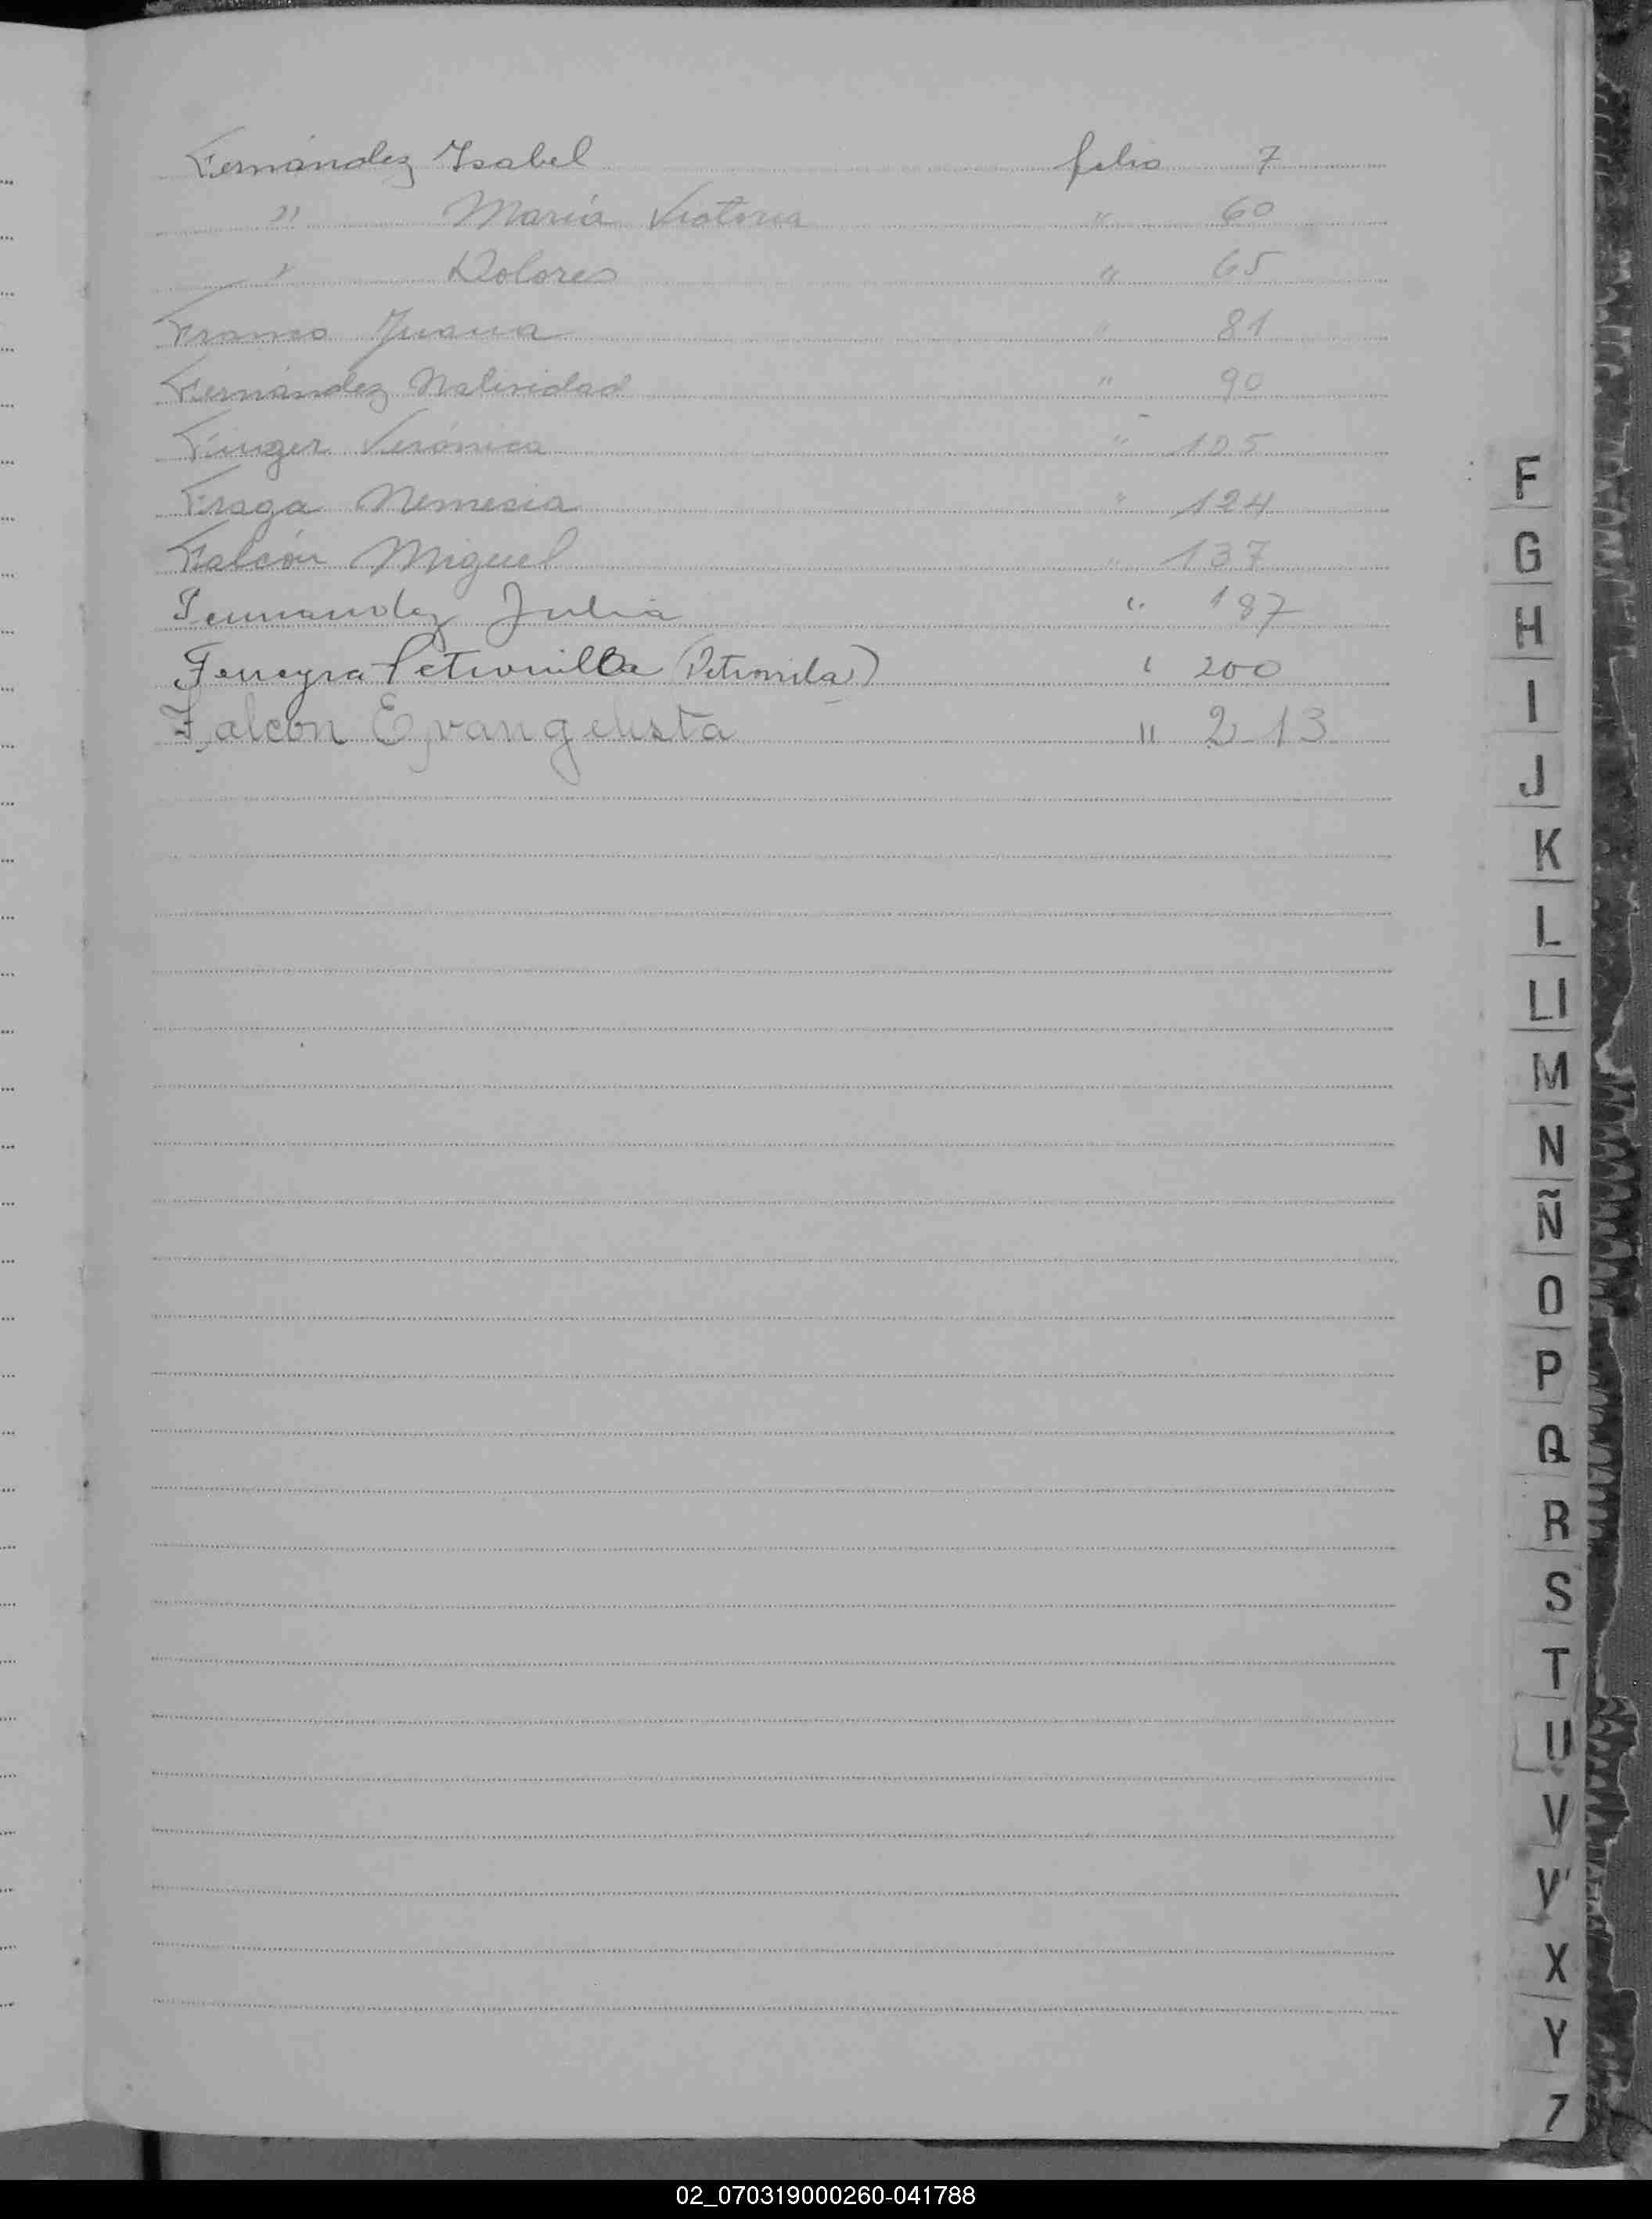 Fernández Isabel folio 7
" María Victoria " 60
" Dolores " 65
Franco Juana " 81
Fernández Natividad " 90
Finger Verónica " 105
Fraga Nemesia " 124
Falcón Miguel " 137
Fernandez Julia " 187
Ferreyra Petronilla (Petronila) " 200
Falcón Evangelista " 213
F
G
H
I
J
K
L
Ll
M
N
Ñ
O
P
Q
R
S
T
U
V
X
Y
02_070319000260-041788